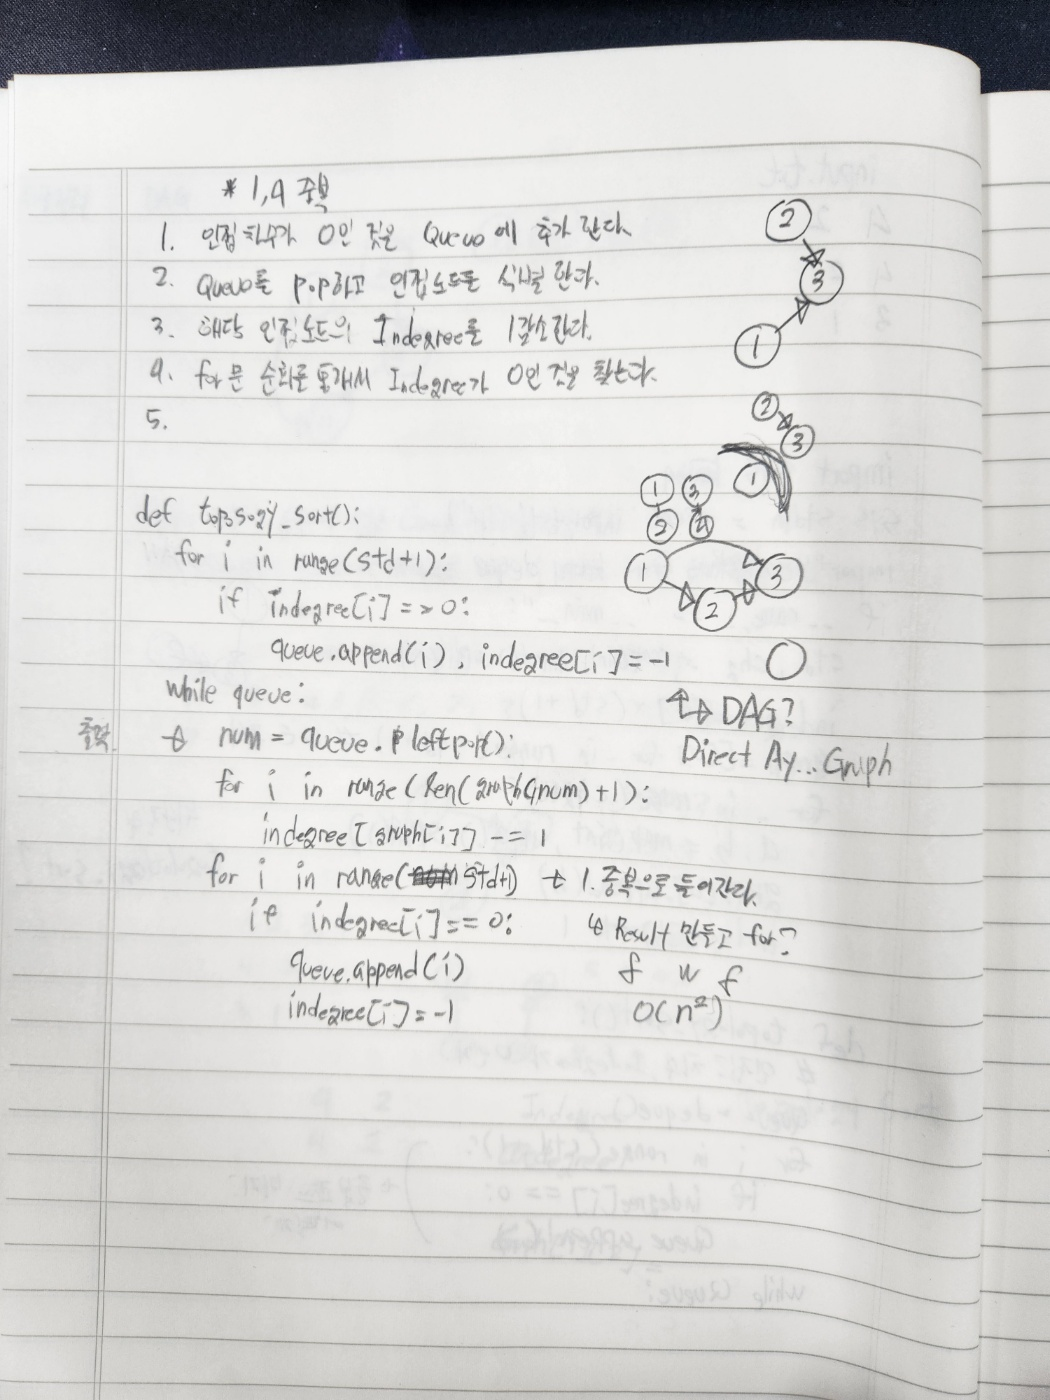 * 1,4 중복
1. 인접차수가 0인 것은 Queue에 추가 한다.
2. Queue를 pop하고 인접노드를 식별 한다.
3. 해당 인접노드의 Indegree를 1감소한다.
4. for문 순회를 통해서 Indegree가 0인 것을 찾는다.
5.
2
3
1
2
3
1
1 3
2 4
1 3
2
def topology_sort():
for i in range(std+1):
if indegree[i] == 0:
queue.append(i), indegree[i] = -1
while queue:
출력. num = queue.leftpop():
for i in range(len(graph[num)+1):
indegree[graph[i]] -= 1
for i in range(std+1) 1. 중복으로 들어간다.
if indegree[i] == 0:
queue.append(i)
indegree[i] = -1
DAG?
Direct Ay... Graph
Result 만들고 for?
f w f
O(n²)